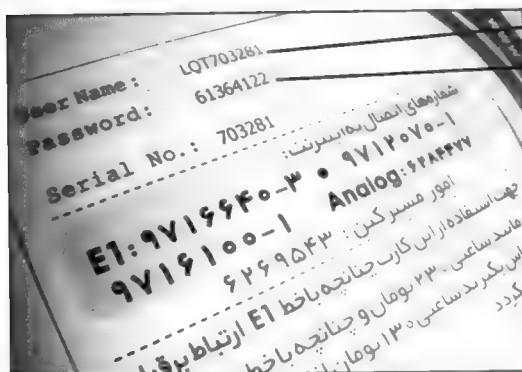 User Name: LQT703281
Password: 61364122
Serial No.: 703281
شماره‌های اتصال به اینترنت:
E1: ۹۷۱۶۶۴۰-۳ • ۹۷۱۲۰۷۰-۱
۹۷۱۶۱۰۰-۱ Analog: ۶۲۸۴۴۷۷
امور مشترکین: ۶۲۶۹۵۴۳
جهت استفاده از این کارت چنانچه با خط E1 ارتباط برقرار
ساعتی ۲۳۰ تومان و چنانچه با خط
بگیرید ساعتی ۱۳۰ تومان
گردد